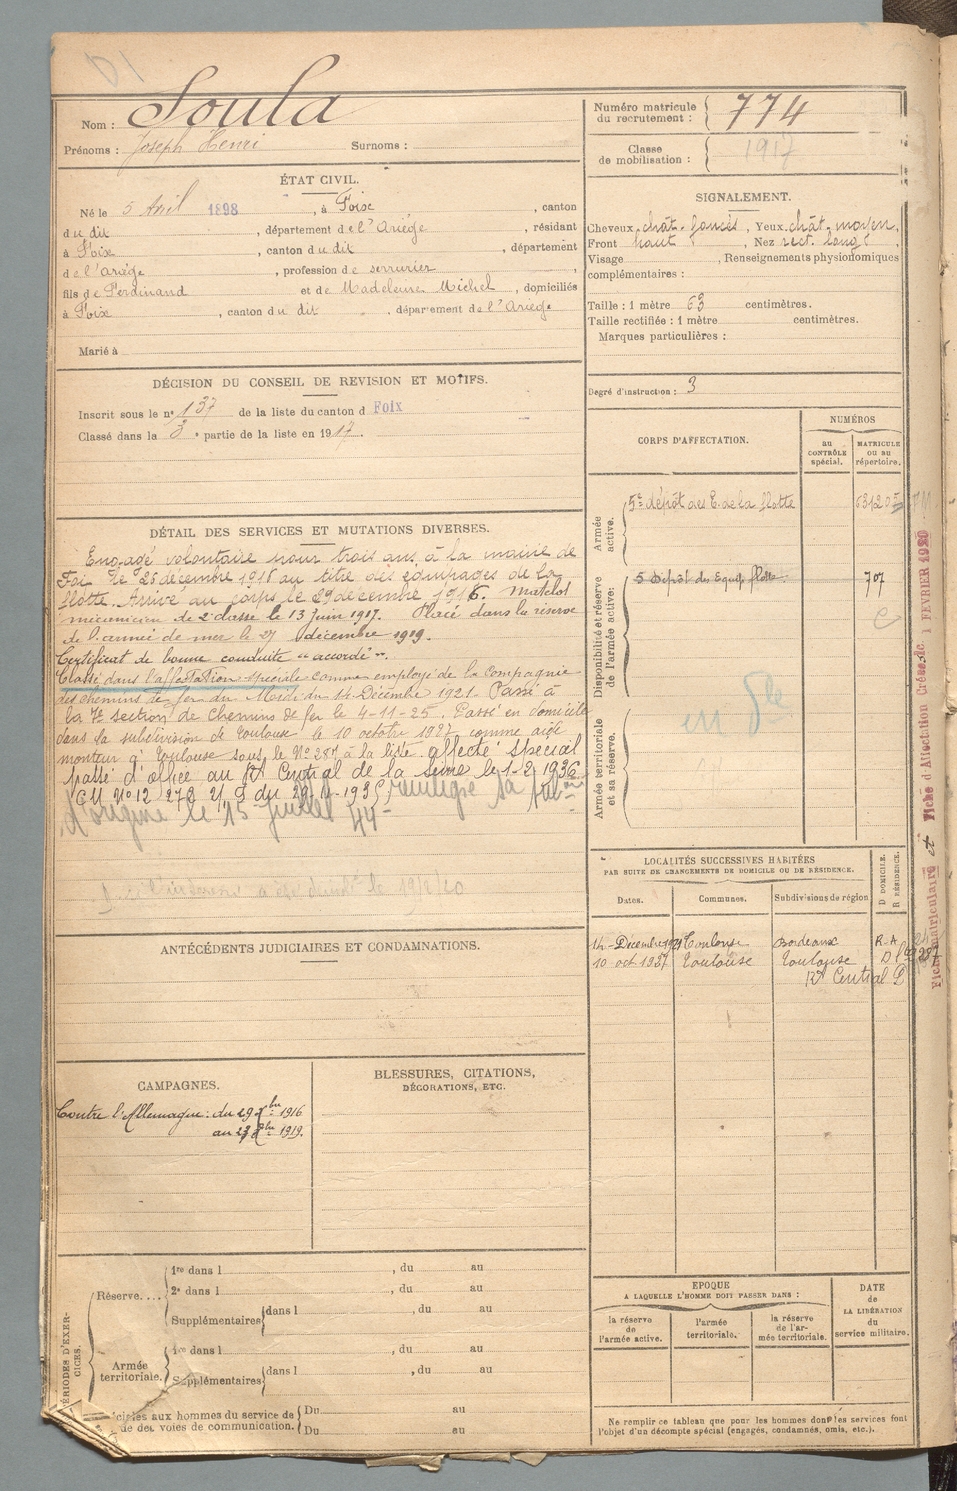 Nom : Soula
Prénoms : Joseph Henri Surnoms :
Numéro matricule du recrutement : 774
Classe de mobilisation : 1917
ÉTAT CIVIL.
Né le 5 Avril 1898, à Foix, canton
du dit, département de l'Ariège, résidant
à Foix, canton du dit, département
de l'Ariège, profession de serrurier
fils de Ferdinand et de Madeleine Michel, domiciliés
à Foix, canton du dit, département de l'Ariège
Marié à
SIGNALEMENT.
Cheveux chât. foncés, Yeux chât. moyen,
Front haut, Nez rect. long,
Visage , Renseignements physionomiques
complémentaires :
Taille : 1 mètre 63 centimètres.
Taille rectifiée : 1 mètre centimètres.
Marques particulières :
Degré d'instruction : 3
DÉCISION DU CONSEIL DE REVISION ET MOTIFS.
Inscrit sous le n° 137 de la liste du canton d Foix
Classé dans la 3e partie de la liste en 1917.
DÉTAIL DES SERVICES ET MUTATIONS DIVERSES.
Engagé volontaire pour trois ans à la mairie de
Foix le 26 décembre 1916 au titre des équipages de la
flotte. Arrivé au corps le 29 décembre 1916. Matelot
mécanicien de 2e classe le 13 juin 1917. Placé dans la réserve
de l'armée de mer le 27 décembre 1919.
Certificat de bonne conduite "accordé".
Classé dans l'affectation spéciale comme employé de la Compagnie
des chemins de fer du Midi du 14 Décembre 1921. Passé à
la 7e section de Chemins de fer le 4-11-25. Passé en domicile
dans la subdivision de Toulouse le 10 octobre 1927 comme aide
monteur à Toulouse sous le N° 287 à la liste. affecté spécial
passé d'office au Rt Central de la Seine le 1-2 1936
réintègre sa
d'origine le 15 juillet 44
ANTÉCÉDENTS JUDICIAIRES ET CONDAMNATIONS.
CAMPAGNES.
Contre l'Allemagne : du 29 Xbre 1916
au 27 Xbre 1919.
BLESSURES, CITATIONS,
DÉCORATIONS, ETC.
CORPS D'AFFECTATION.
NUMÉROS
au CONTRÔLE spécial.
MATRICULE ou au répertoire.
Armée active.
5e dépôt des E. de la flotte
Disponibilité et réserve de l'armée active.
5 Dépôt des Equip. flotte 707
Armée territoriale et sa réserve.
LOCALITÉS SUCCESSIVES HABITÉES
PAR SUITE DE CHANGEMENTS DE DOMICILE OU DE RÉSIDENCE.
Dates. Communes. Subdivisions de région D DOMICILE. R RÉSIDENCE.
14 Décembre 1921 Toulouse Bordeaux R-A
10 oct 1927 Toulouse Toulouse D
Rt Central D
Fiche matriculaire et Fiche d'Affectation Créées le 1 FEVRIER 1920
PÉRIODES D'EXERCICES.
Réserve....
1re dans l , du au
2e dans l , du au
Supplémentaires dans l , du au
Armée territoriale.
1re dans l , du au
Supplémentaires dans l , du au
ciales aux hommes du service de
de des voies de communication.
Du au
Du au
EPOQUE
A LAQUELLE L'HOMME DOIT PASSER DANS :
la réserve de l'armée active.
l'armée territoriale.
la réserve de l'armée territoriale.
DATE de LA LIBÉRATION du service militaire.
Ne remplir ce tableau que pour les hommes dont les services font
l'objet d'un décompte spécial (engagés, condamnés, omis, etc.).